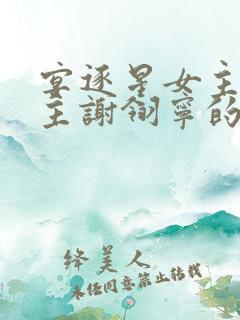 宴逐星女主
主謝翎寧的
绛美人
未经同意禁止转载